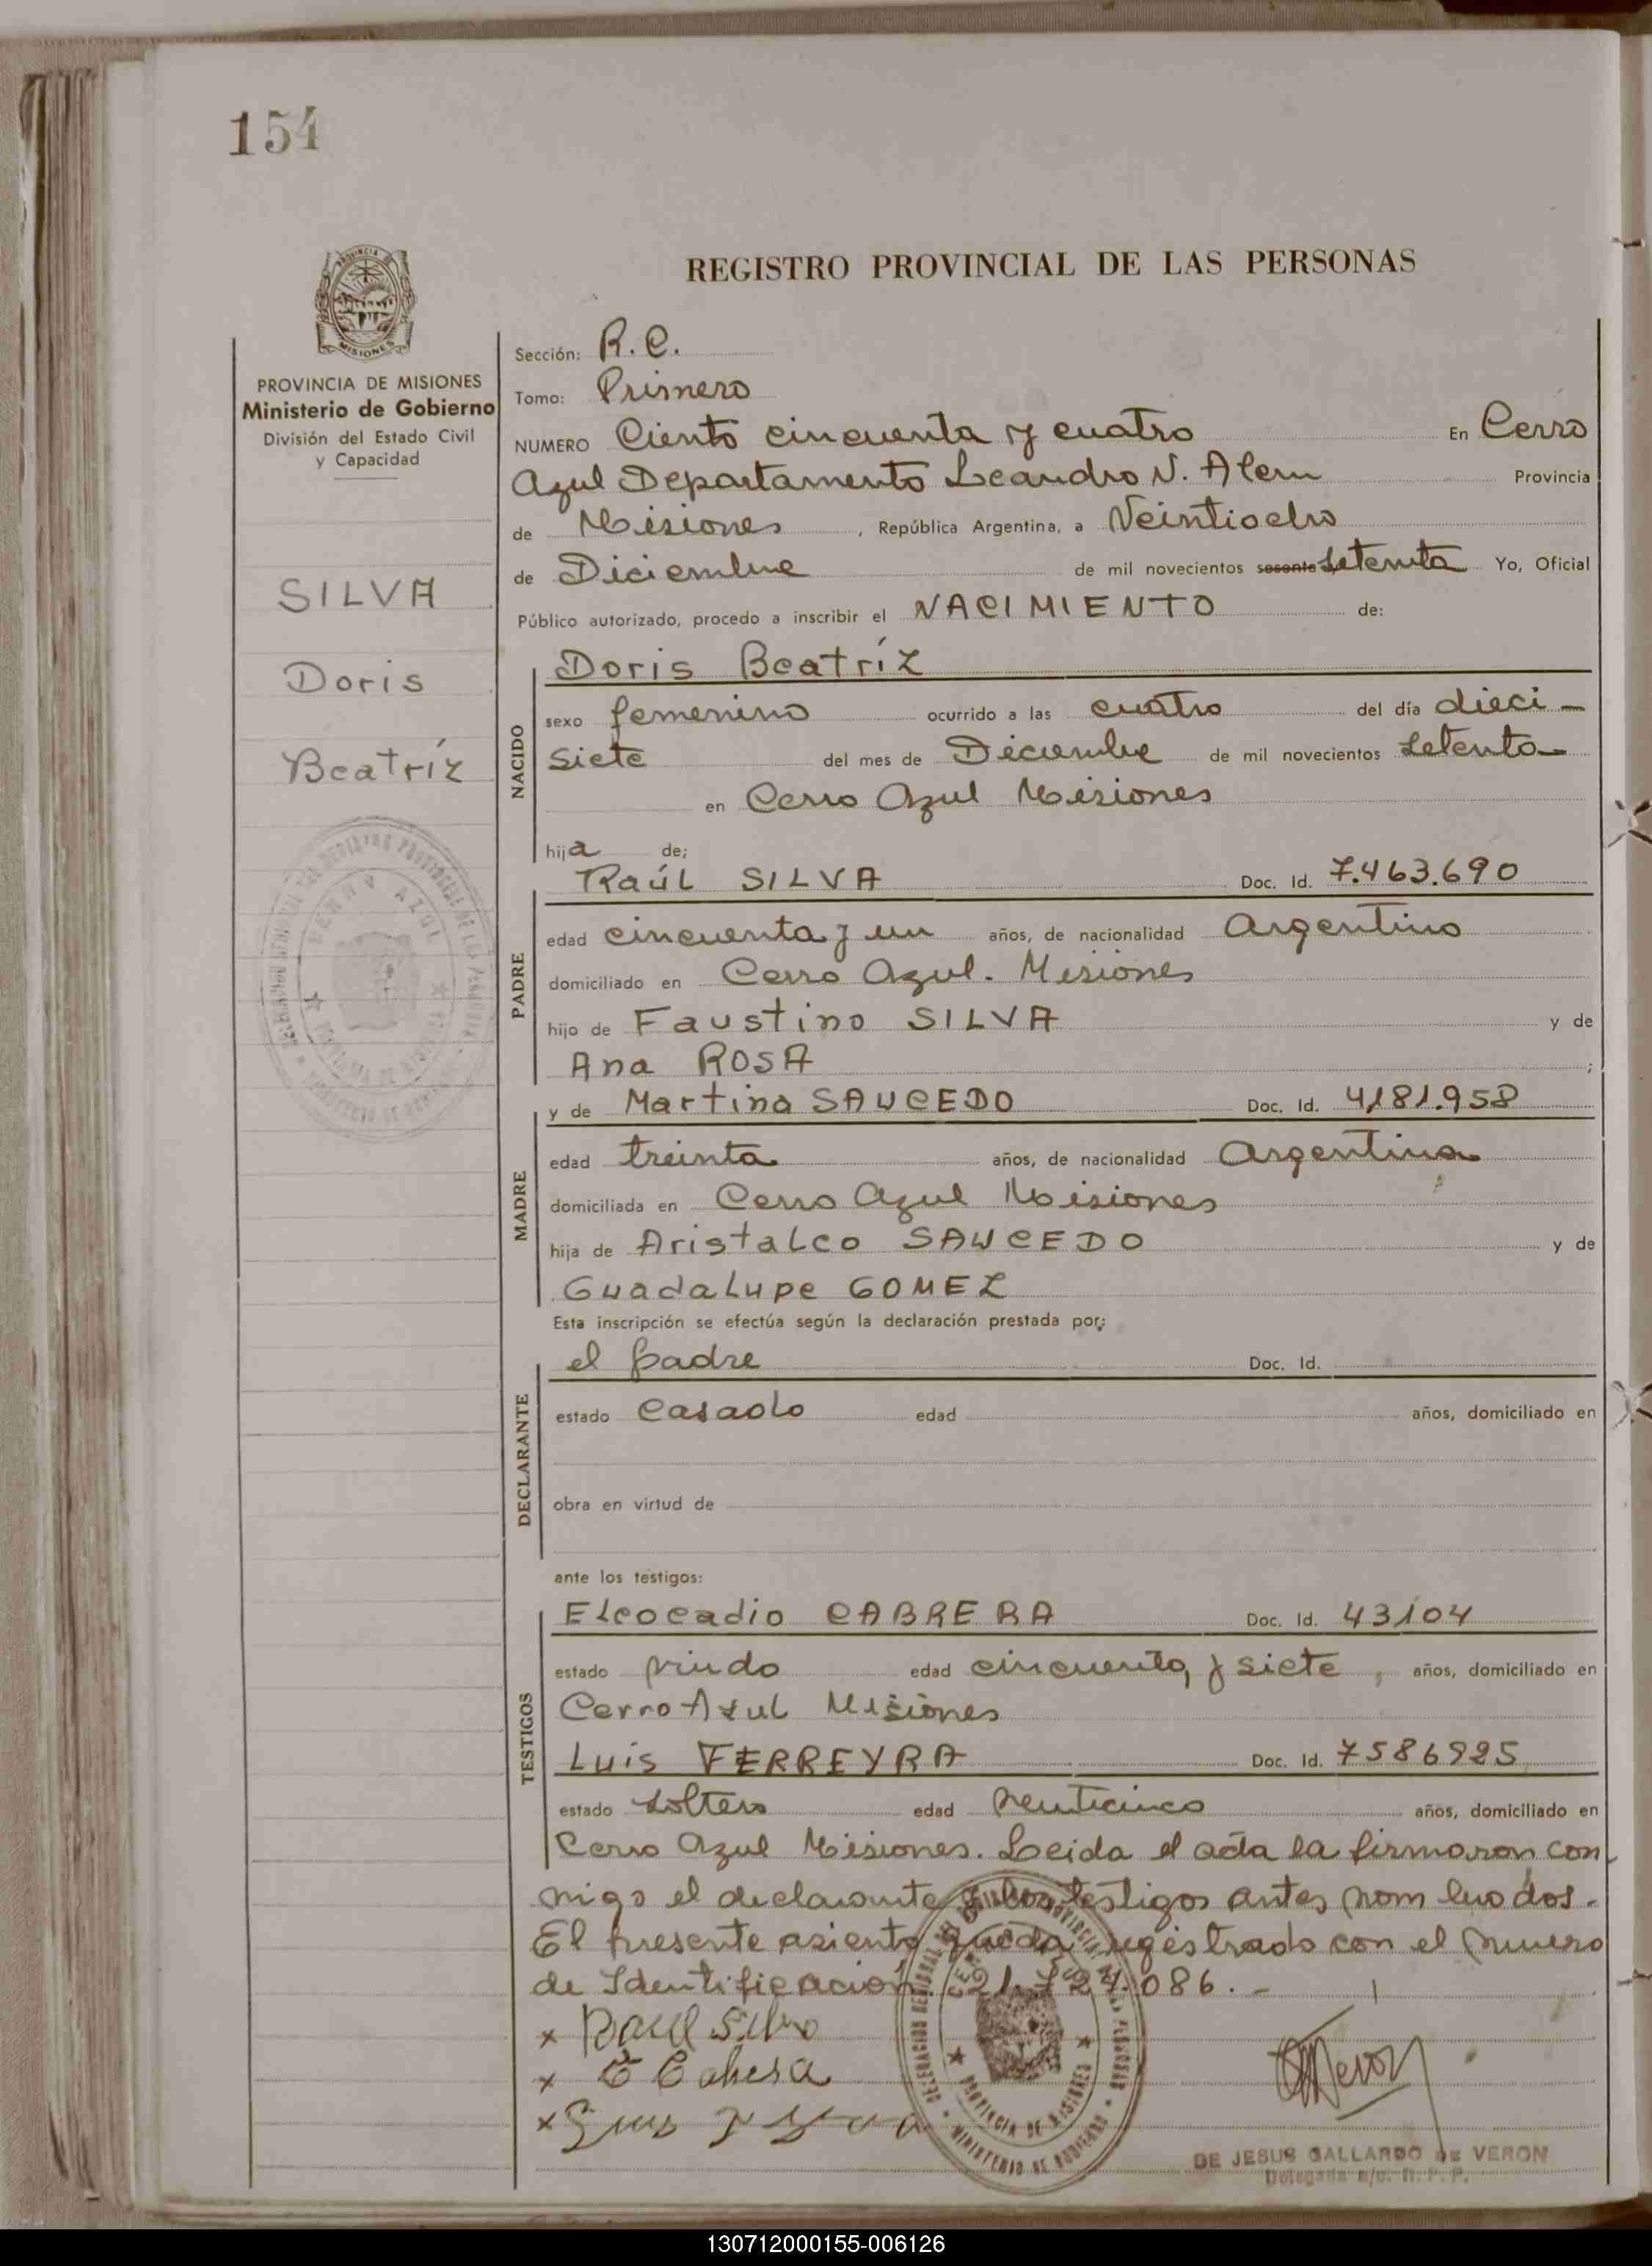 154
REGISTRO PROVINCIAL DE LAS PERSONAS
PROVINCIA DE MISIONES
Ministerio de Gobierno
División del Estado Civil
y Capacidad
SILVA
Doris
Beatríz
Sección: R.C.
Tomo: Primero
NUMERO Ciento cincuenta y cuatro En Cerro
Azul Departamento Leandro N. Alem Provincia
de Misiones, República Argentina, a Veintiocho
de Diciembre de mil novecientos sesenta Setenta Yo, Oficial
Público autorizado, procedo a inscribir el NACIMIENTO de:
Doris Beatríz
NACIDO
sexo femenino ocurrido a las cuatro del día dieci-
siete del mes de Diciembre de mil novecientos setenta
en Cerro Azul Misiones
hija de;
Raúl SILVA Doc. Id. 7.463.690
PADRE
edad cincuenta y un años, de nacionalidad Argentino
domiciliado en Cerro Azul. Misiones
hijo de Faustino SILVA y de
Ana ROSA ;
y de Martina SAUCEDO Doc. Id. 4.181.958
MADRE
edad treinta años, de nacionalidad Argentina
domiciliada en Cerro Azul Misiones
hija de Aristalco SAUCEDO y de
Guadalupe GOMEZ
Esta inscripción se efectúa según la declaración prestada por;
el padre Doc. Id.
DECLARANTE
estado Casado edad años, domiciliado en
obra en virtud de
ante los testigos:
Elcocadio CABRERA Doc. Id. 43104
TESTIGOS
estado viudo edad cincuenta y siete, años, domiciliado en
Cerro Azul Misiones
Luis FERREYRA Doc. Id. 7586925
estado soltero edad veinticinco años, domiciliado en
Cerro Azul Misiones. Leida el acta la firmaron con
migo el declarante y los testigos antes nombrados.
El presente asiento queda registrado con el numero
de Identificación 21.724.086.-
x Raul Silva
x E Cabrera
x Luis
DE JESUS GALLARDO DE VERON
Delegada a/c. R.P.P.
130712000155-006126